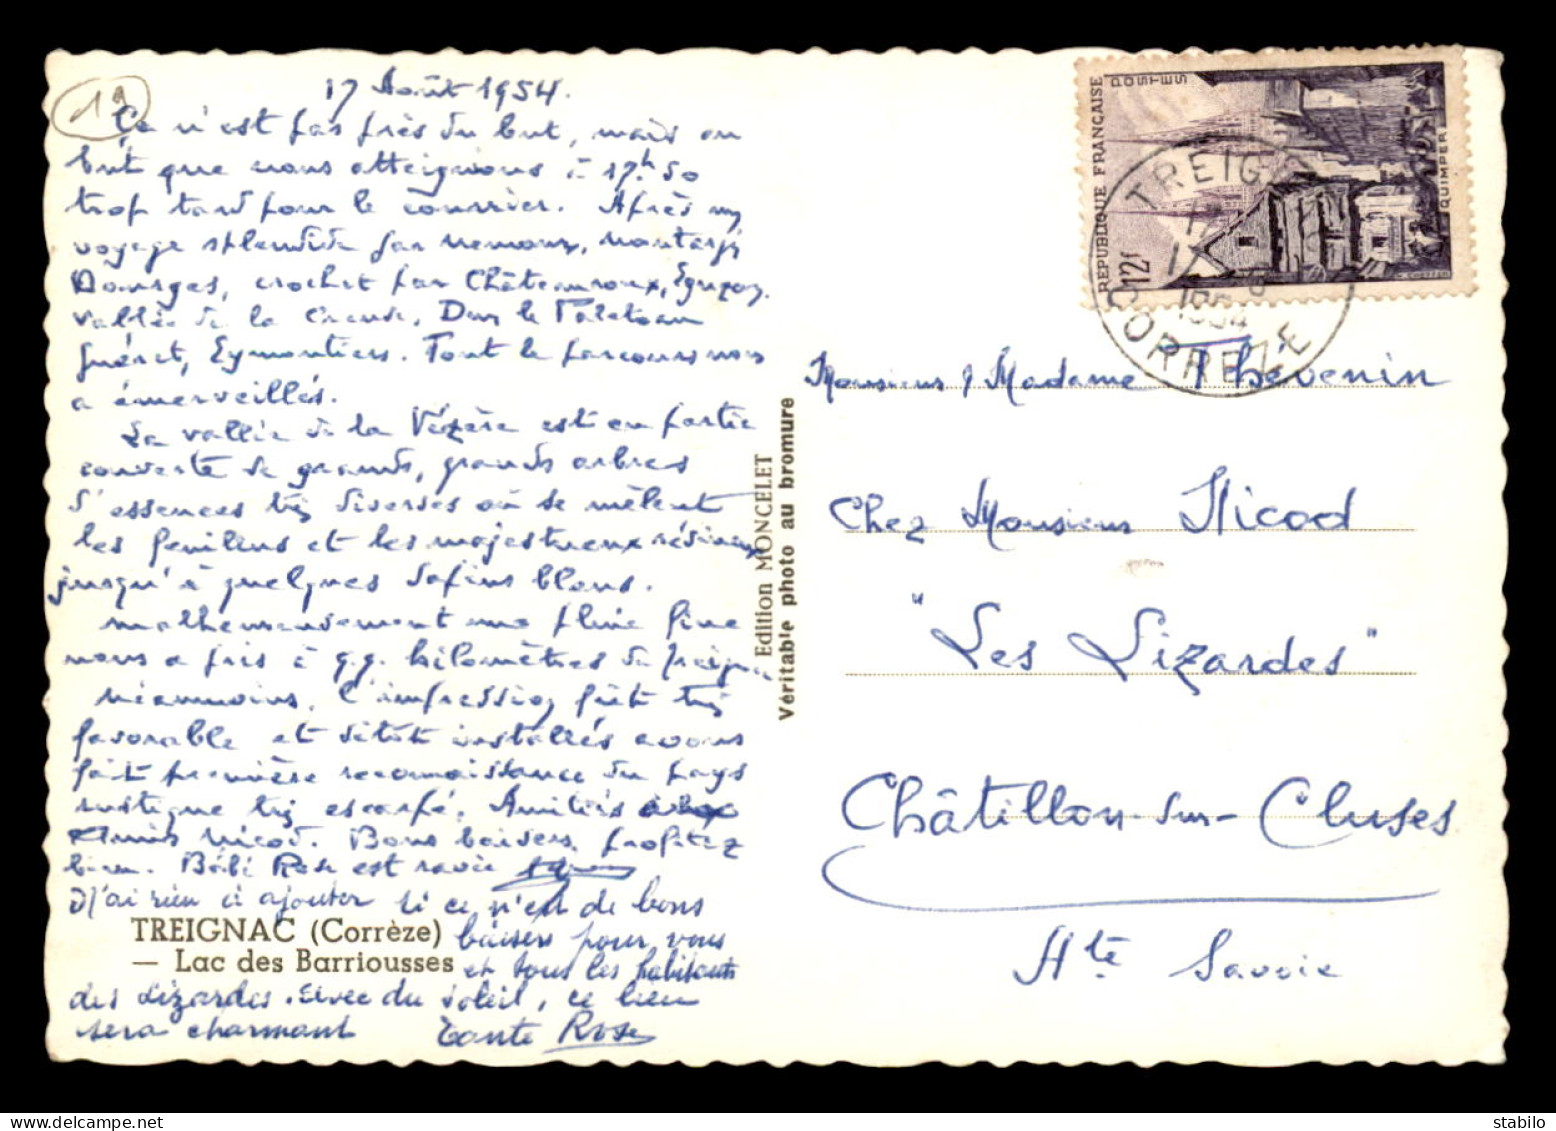 19
17 Août 1954.
Ce n'est pas près du but, mais au
but que nous atteignons à 17h50
trop tard pour le courrier. Après un
voyage splendide par Nemours, Montargis
Bourges, crochet par Châteauroux, Eguzon,
vallée de la Creuse, Dun le Paleteau
Guéret, Eymoutiers. Tout le parcours nous
a émerveillés.
La vallée de la Vézère est en partie
couverte de grands, grands arbres
d'essences très diverses où se mêlent
les feuillus et les majestueux résineux
jusqu'à quelques sapins bleus.
malheureusement une pluie fine
nous a pris à q.q. kilomètres de Treignac
néanmoins, l'impression fût très
favorable et sitôt installés avons
fait première reconnaissance du pays
rustique très escarpé. Amitiés aux
amis Nicod. Bons baisers, profitez
bien. Bébé Rose est ravie
Je n'ai rien à ajouter si ce n'est de bons
baisers pour vous
et tous les habitants
des Lizardes. Avec du soleil, ce lieu
sera charmant Tante Rose
TREIGNAC (Corrèze)
— Lac des Barriousses
Edition MONCELET
Véritable photo au bromure
REPUBLIQUE FRANÇAISE
POSTES
12f
QUIMPER
TREIGNAC
17
1954
CORREZE
Monsieur & Madame Thevenin
Chez Monsieur Nicod
"Les Lizardes"
Châtillon-sur-Cluses
Hte Savoie
stabilo